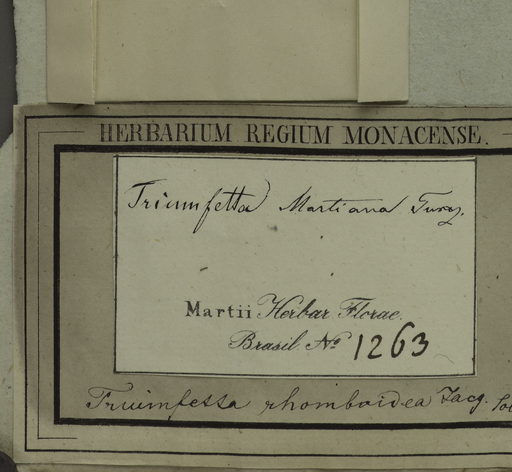 HERBARIUM REGIUM MONACENSE.
Triumfetta Martiana Turcz.
Martii Herbar. Florae.
Brasil. No 1263
Triumfetta rhomboidea Jacq.